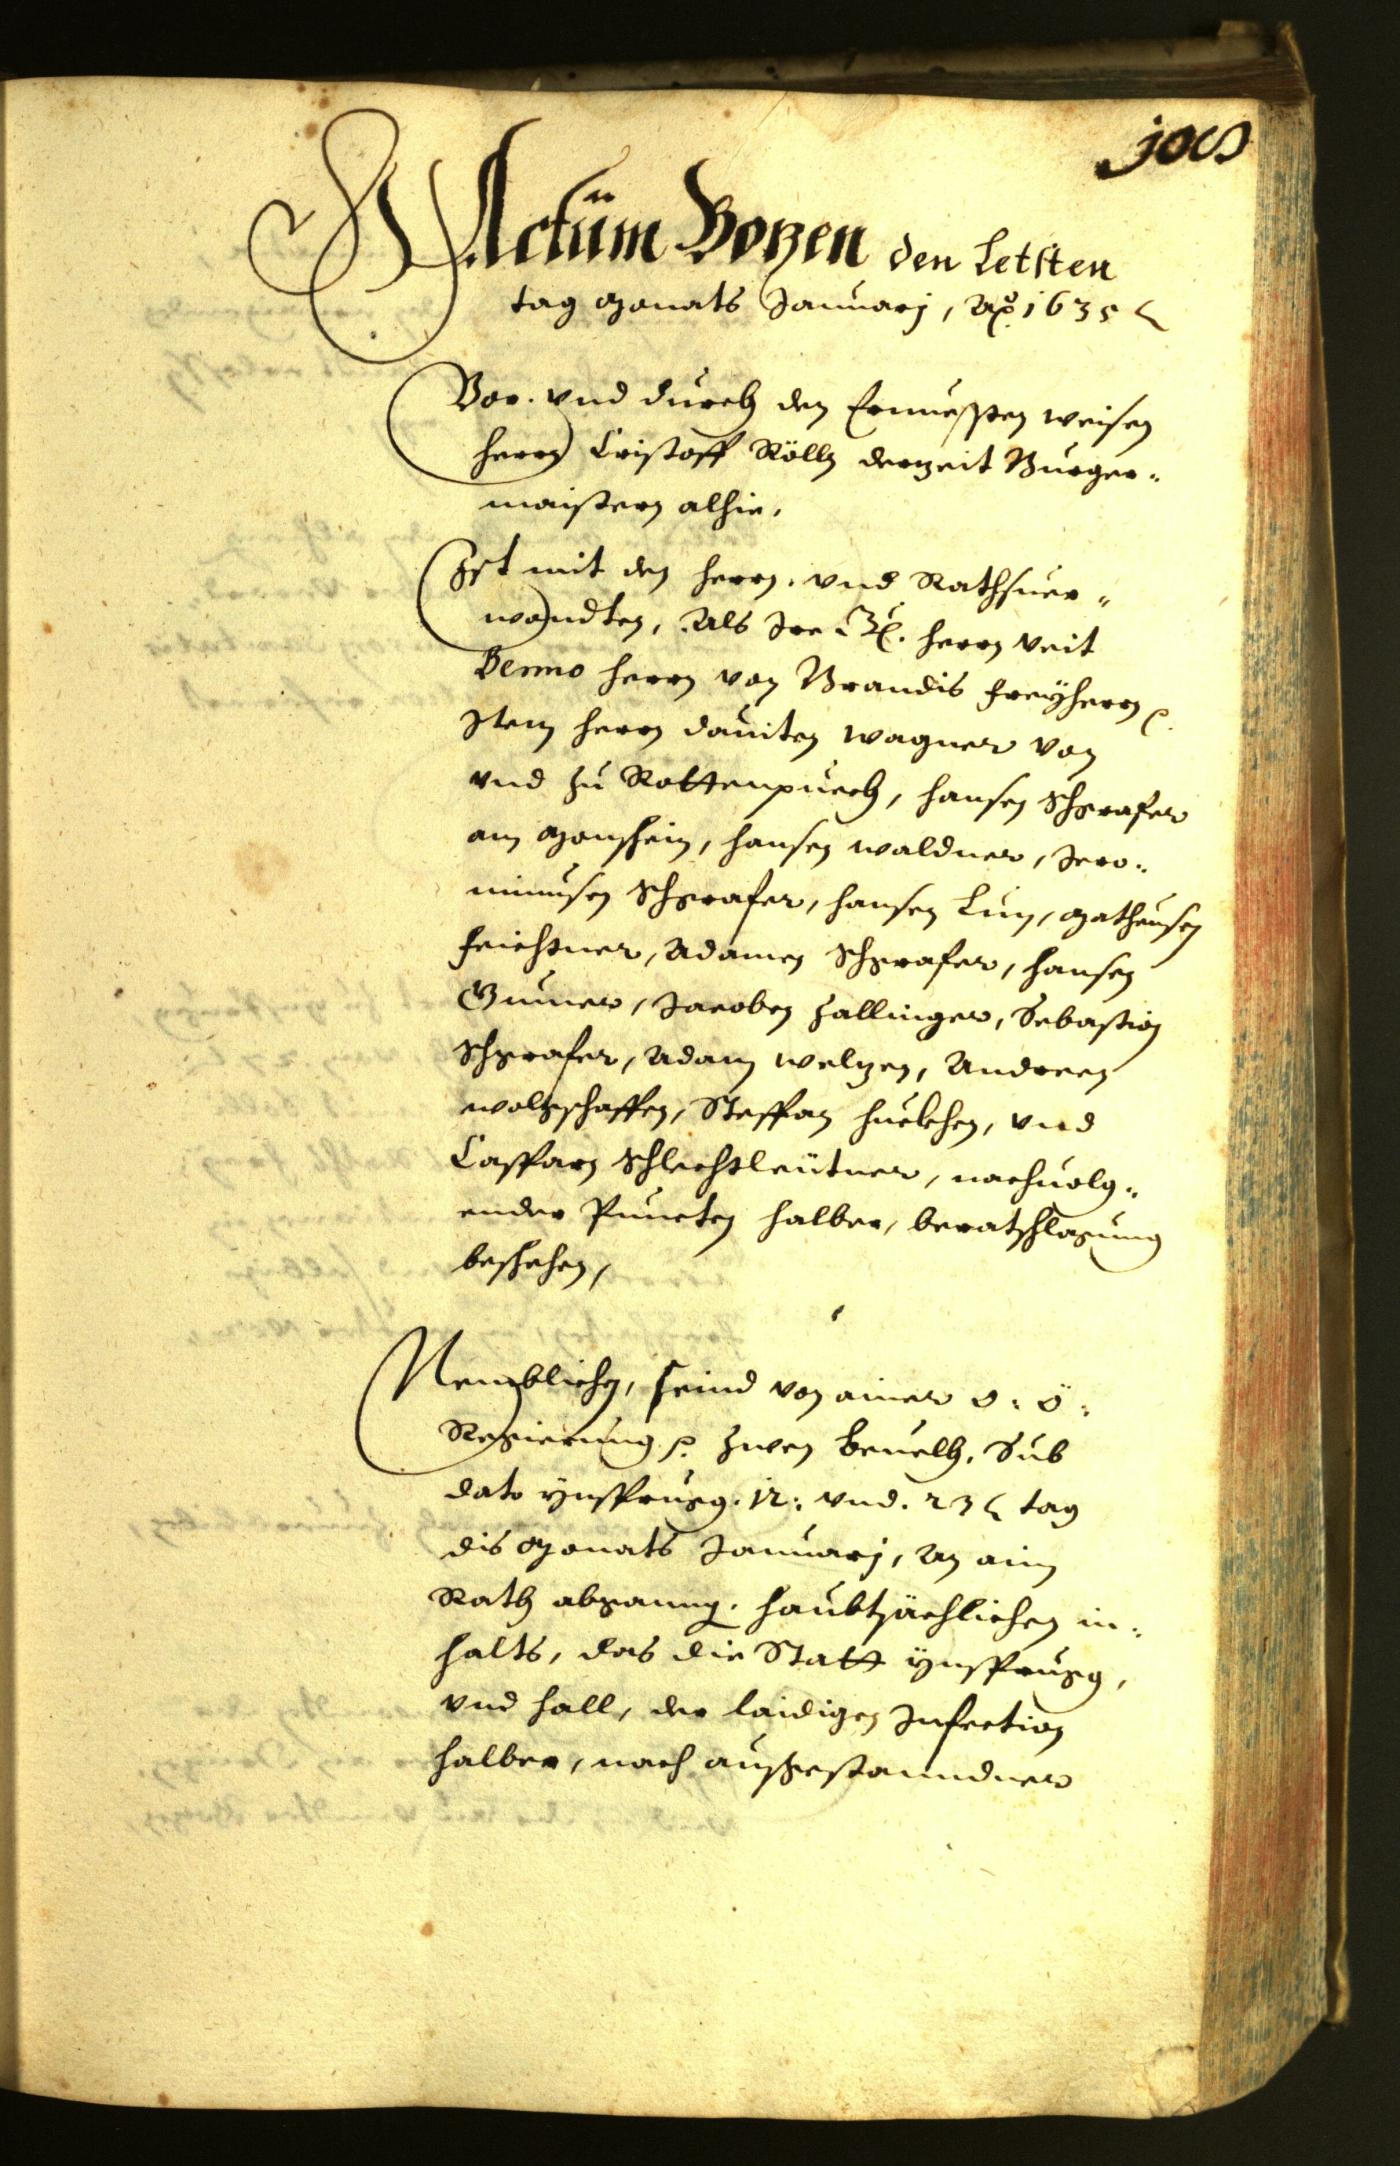 Actum Botzen den Letsten
tag Monats Januarj, Ao 1635
Vor. vnd durch den Ernuessten weisen
herrn Cristoff Rölln derzeit Burger-
maistern alhie.
Ist mit den herrn. vnd Rathsuer-
wandten, Als Ire Gn. herrn Veit
Benno herrn von Brandis freyherrn
Item herrn Dauiten Wagner von
vnd zu Rottenpuech, hansen Schgrafer
am Monshein, hansen Waldner, Jero-
nimusen Schgrafer, hansen Lun, Matheusen
Feichtner, Adamen Schgrafer, hansen
Gumer, Jacoben Zallinger, Sebastian
Schgrafer, Adam Weltzen, Andreen
Wolgschaffen, Steffan huebhen, vnd
Casparn Schlechtleutner, nachuolg-
ender Puncten halber, beratschlagung
beschehen,
Nemblichen, seind von ainer O: Ö:
Regierung zwen beuelh. Sub
dato ynssprugg. 12: vnd. 23 tag
dis Monats Januarj, An ain
Rath abganng. haubtsächlichen in-
halts, das die Statt ynssprugg,
vnd hall, der laidigen Infection
halber, nach aussgestanndner